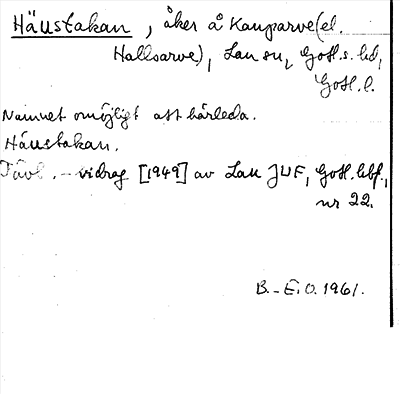 Häustakan, åker å Kauparve (el.
Hallsarve), Lau sn, Gotl. s. hd,
Gotl. l.
Namnet omöjligt att härleda.
Häustakan.
Tävl. - vidrag [1949] av Lau JUF, Gotl. hbf.,
nr 22.
B.-E.O. 1961.